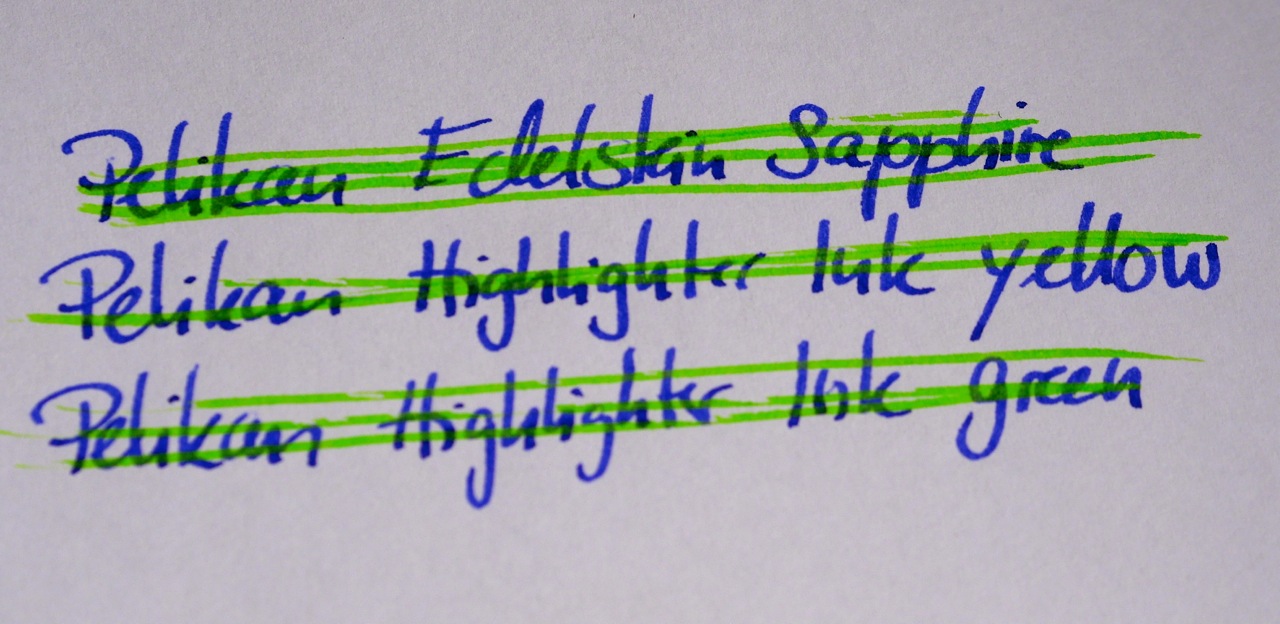 Pelikan Edelstein Sapphire
Pelikan Highlighter Ink yellow
Pelikan Highlighter Ink green